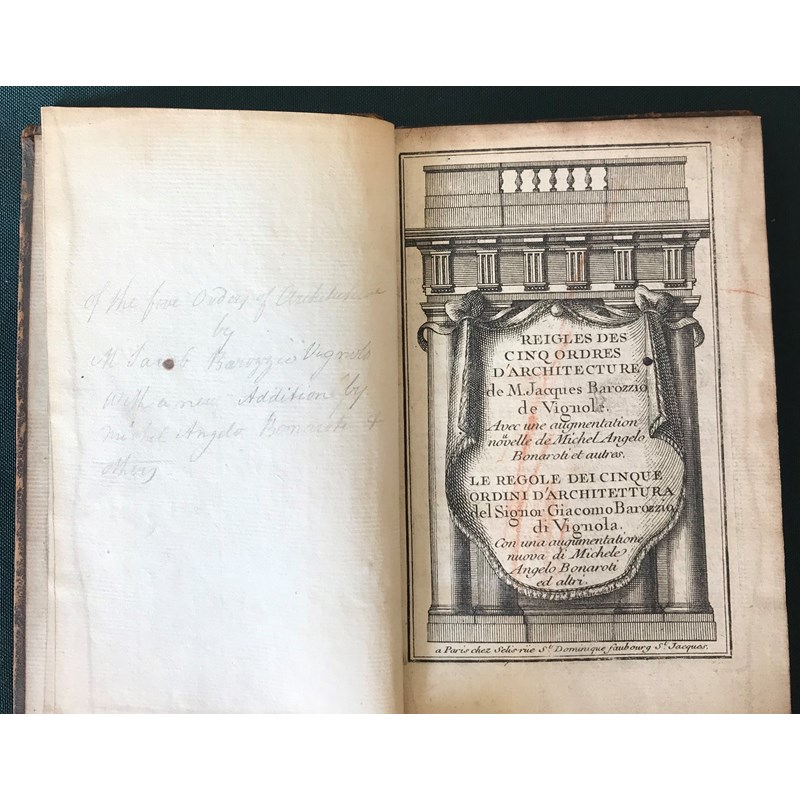 of the five Orders of Architecture
by
M Jacob Barozzio Vignolo
with a new Addition by
Michel Angelo Bonaroti &
others
REIGLES DES
CINQ ORDRES
D'ARCHITECTURE
de M. Jacques Barozzio
de Vignole.
Avec une augmentation
nouvelle de Michel Angelo
Bonaroti et autres.
LE REGOLE DEI CINQUE
ORDINI D'ARCHITETTURA
del Signor Giacomo Barozzio
di Vignola.
Con una augumentatione
nuova di Michele
Angelo Bonaroti
ed altri.
a Paris chez Selis rüe St. Dominique faubourg St. Jacques.